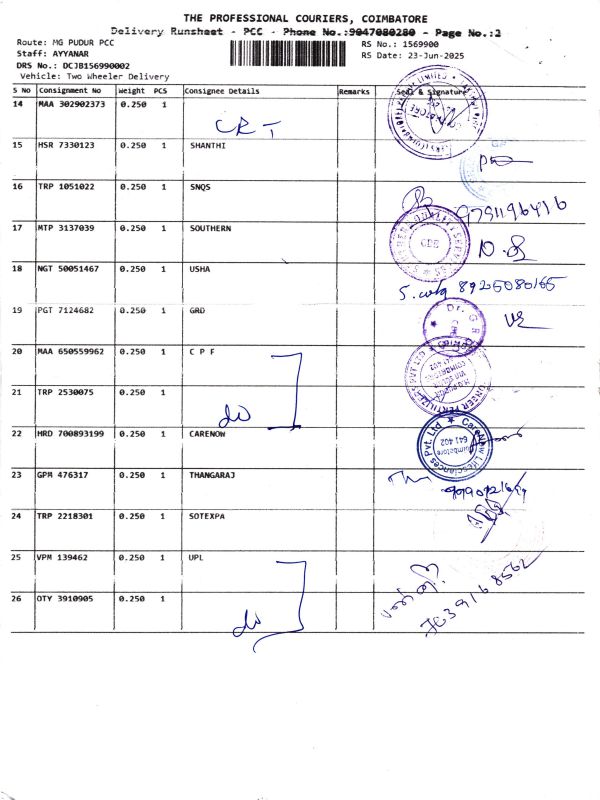 THE PROFESSIONAL COURIERS, COIMBATORE
Delivery Runsheet - PCC - Phone No.:9047080280 - Page No.:2
Route: MG PUDUR PCC
RS No.: 1569900
Staff: AYYANAR
RS Date: 23-Jun-2025
DRS No.: DCJB156990002
Vehicle: Two Wheeler Delivery
S No Consignment No Weight PCS Consignee Details Remarks Seal & Signature
14 MAA 302902373 0.250 1
CRT
15 HSR 7330123 0.250 1 SHANTHI
16 TRP 1051022 0.250 1 SNQS
9751196416
17 MTP 3137039 0.250 1 SOUTHERN
18 NGT 50051467 0.250 1 USHA
8925080165
19 PGT 7124682 0.250 1 GRD
Dr. G R
20 MAA 650559962 0.250 1 C P F
21 TRP 2530075 0.250 1
do
22 HRD 700893199 0.250 1 CARENOW
CareNow Lifesciences Pvt. Ltd
Coimbatore
641 402
23 GPM 476317 0.250 1 THANGARAJ
24 TRP 2218301 0.250 1 SOTEXPA
25 VPM 139462 0.250 1 UPL
26 OTY 3910905 0.250 1
do